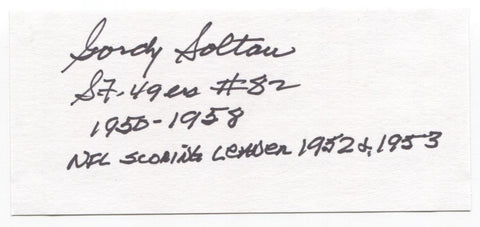 Gordy Soltau
SF. 49ers #82
1950-1958
NFL SCORING LEADER 1952 & 1953